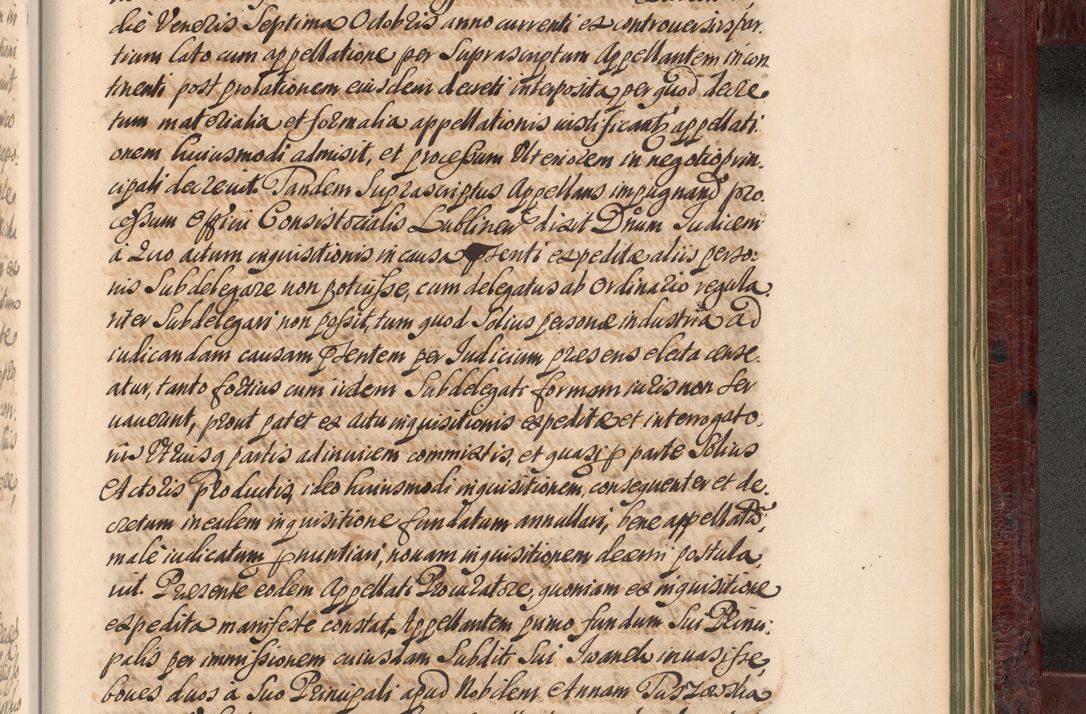 die Veneris Septima Octobris anno currenti ex controuersijs par-
tium lato cum appellatione per Suprascriptum Appellantem incon
tinenti post prolationem eiusdem decreti interposita, per quod decre
tum materialia et formalia appellationis iustificantq appellati
onem huiusmodi admisit, et processum Ulteriorem in negotio prin
cipali decreuit. Tandem Suprascriptus Appellans impugnand pro
cessum officii Consistorialis Lublinen dixit Dnum Judicem
à Quo actum inquisitionis in causa pñsenti expeditæ aliis perso:
nis Subdelegare non potuisse, cum delegatus ab Ordinario regula
riter Subdelegari non possit, tum quod Solius personæ industria ad
iudicandam causam pñsentem per Judicium præsens electa cense
atur, tanto fortius cum iidem Subdelegati formam iuris non Ser
uauerunt, prout patet ex actu inquisitionis expeditæ et interrogato
riis Utriusq partis adinuicem commixtis, et quasi p parte Solius
Actoris Productis, ideo huiusmodi inquisitionem, consequenter et de.
cretum in eadem inquisitione fundatum annullari, bene appellatũ,
malè iudicatum pnuntiari, nouam inquisitionem decerni postula
uit. Præsente eodem Appellati Procuratore, quoniam ex inquisitione
expedita manifeste constat, Appellantem primo fundum Sui Princi
palis per immissionem cuiusdam Subditi Sui Iwanek inuasisse,
boues duos à Suo Principali apud Nobilem Annam